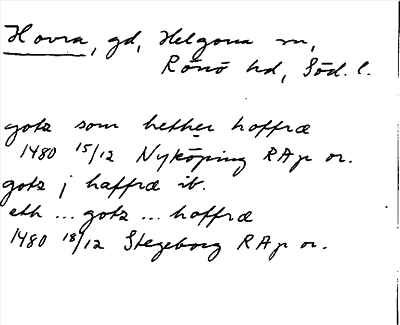 Hovra, gd, Helgona sn,
Rönö hd, Söd. l.
gotz som hether hoffræ
1480 15/12 Nyköping RAp or.
gotz j haffræ ib.
eth ... gotz ... hoffræ
1480 18/12 Stegeborg RAp or.